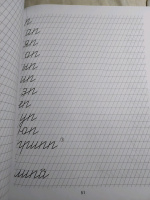 п
ап
яп
оп
ып
ип
эп
еп
уп
юп
грипп
липа